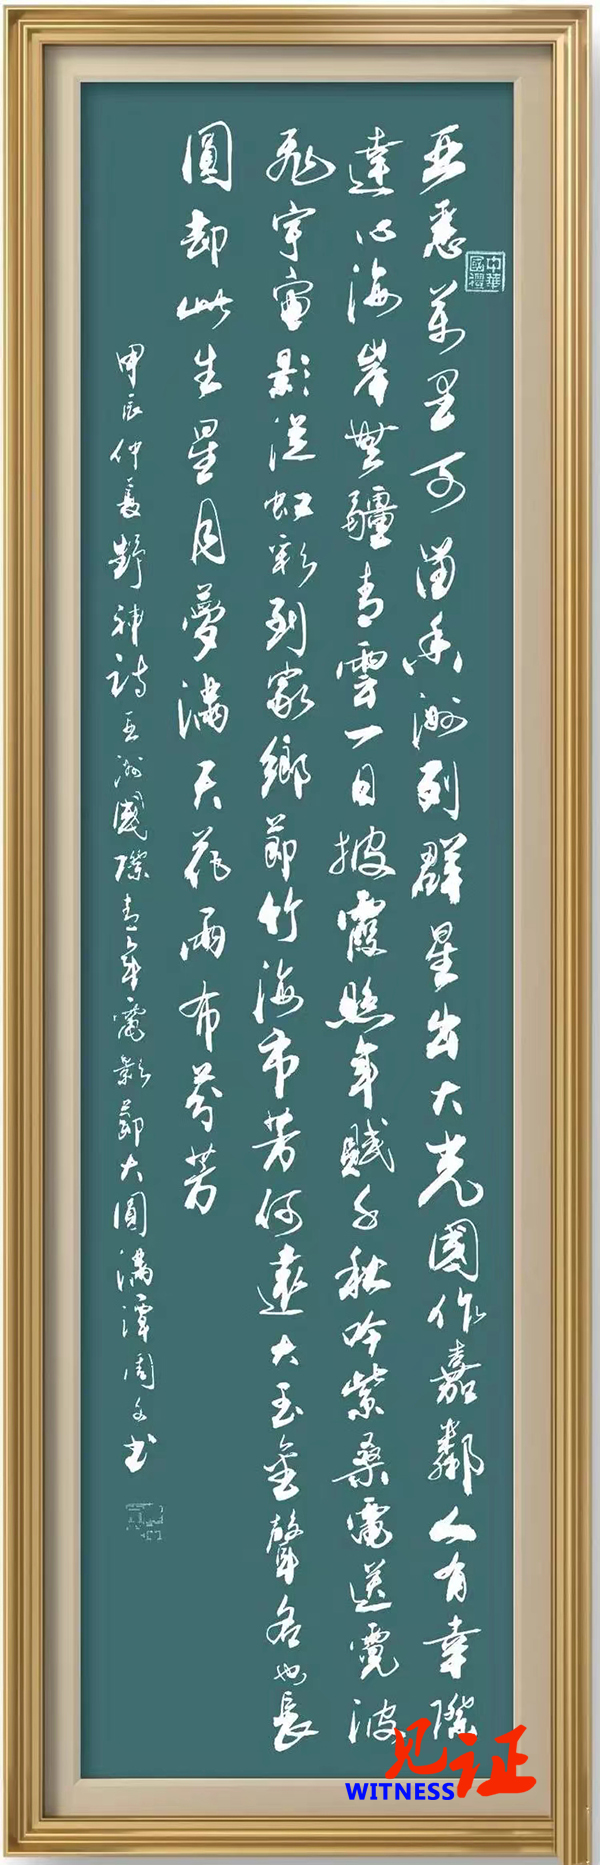 亞悉萬里可留香洲列群星出大光國作嘉鄰人有幸際
達心海岸無疆青雲一日披霞照年賦千秋吟紫桑電送電波
飛宇宙影從虹彩到家鄉節竹海市芳何遠大玉金聲名也長
圓卻此生星月夢滿天花雨布芬芳
甲辰仲夏野神詩亞洲國際青年電影節大圓滿潭周文書
中華國禮
见证
WITNESS